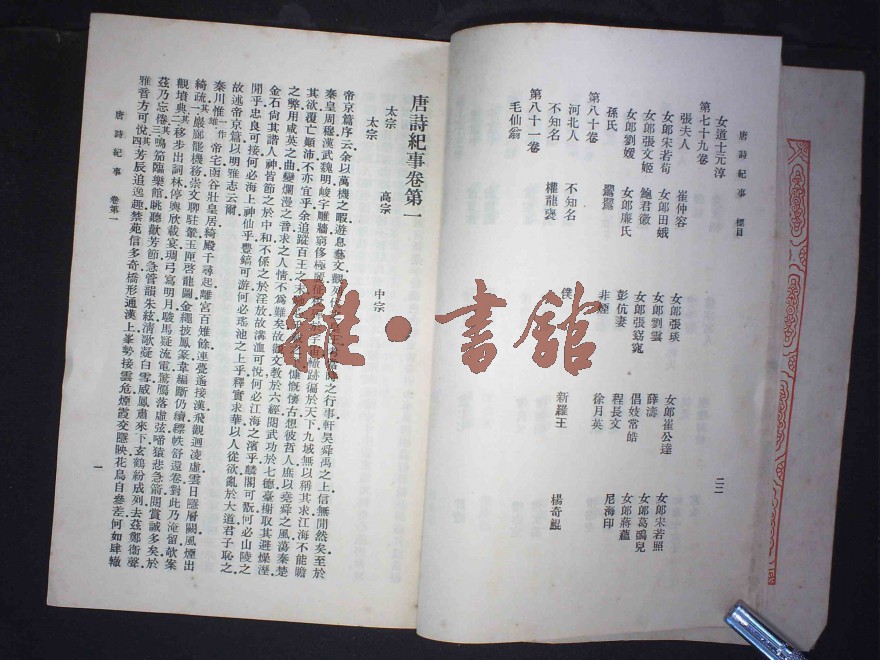 唐詩紀事 標目 二二
女道士元淳
第七十九卷
張夫人 崔仲容 女郎張琰 女郎崔公達 女郎宋若照
女郎宋若荀 女郎田娥 女郎劉雲 薛濤 女郎葛鵶兒
女郎張文姬 鮑君徽 女郎張窈窕 倡妓常皓 女郎蔣蘊
女郎劉媛 女郎廉氏 彭伉妻 程長文 尼海印
孫氏 鸎鸎 非煙 徐月英
第八十卷
河北人 不知名 僕 新羅王 楊奇鯤
不知名 權龍褒
第八十一卷
毛仙翁
唐詩紀事卷第一
太宗 高宗 中宗
太宗
帝京篇序云余以萬機之暇遊息藝文觀列代之行事軒昊舜禹之上信無間然矣至於
秦皇周穆漢武魏明峻宇雕牆窮侈極麗轍跡徧於天下九域無以稱其求江海不能贍
其欲覆亡顛沛不亦宜乎余追蹤百王之末慷慨懷古想彼哲人庶以堯舜之風蕩秦楚
之弊用咸英之曲變爛漫之音求之人情不為難矣故觀文教於六經閱武功於七德臺榭取其避燥溼
金石尚其諧人神皆節之於中和不係之於淫放故溝洫可悅何必江海之濱乎麟閣可翫何必山陵之
間乎忠良可接何必海上神仙乎豐鎬可游何必瑤池之上乎釋實求華以人從欲亂於大道君子恥之
故述帝京篇以明雅志云爾
秦川惟一作其雄帝宅函谷壯皇居綺殿千尋起離宮百雉餘連甍遙接漢飛觀迥凌虛雲日隱層闕風煙出
綺疏其一巖廊罷機務崇文聊駐輦玉匣啓龍圖金繩披鳳篆韋編斷仍續縹帙舒還卷對此乃淹留欹案
觀墳典其二移步出詞林停輿欣載宴琱弓寫明月駿馬疑流電驚鴈落虛弦啼猿悲急箭閱賞誠多美於
茲乃忘倦其三鳴笳臨樂館眺聽歡芳節急管韻朱絃清歌凝白雪威鳳肅來下玄鶴紛成列去茲鄭衞聲
雅音方可悅其四芳辰追逸趣禁苑信多奇橋形通漢上峯勢接雲危煙霞交隱映花鳥自參差何如肆轍
唐詩紀事 卷第一 一
雜·書館